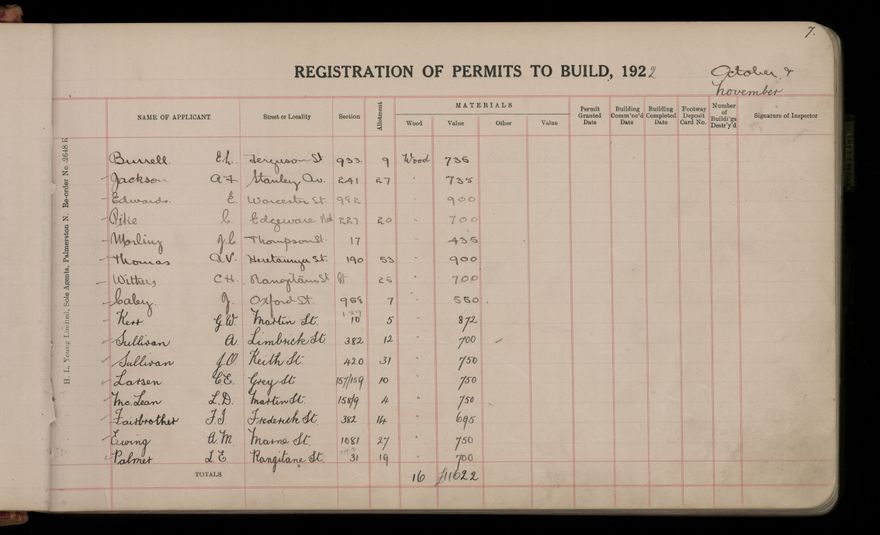 7.
REGISTRATION OF PERMITS TO BUILD, 1922 October & November
H. L. Young Limited, Sole Agents, Palmerston N. Re-order No. 2648
NAME OF APPLICANT Street or Locality Section Allotment MATERIALS Wood Value Other Value Permit Granted Date Building Comm'nc'd Date Building Completed Date Footway Deposit Card No. Number of Buildi'gs Destr'y'd Signature of Inspector
Burrell E.L. Ferguson St 933 9 Wood 735
Jackson A.F. Stanley Av. 241 27 " 735
Edwards. E. Worcester St. 982 " 900
Pike C. Edgeware Rd 227 20 " 700
Morling J.C. Thompson St. 17 " 435
Thomas A.V. Heretaunga St. 190 53 " 900
Withers C H. Rangitane St 25 " 700
Caley. J. Oxford St. 958 7 " 550
Kerr G.W. Martin St. 10 5 " 872
Sullivan A Limbrick St 382 12 " 700
Sullivan J.O. Keith St. 420 31 " 750
Larsen C.E. Grey St 157/159 10 " 750
McLean L.D. Martin St. 158/9 4 " 750
Fairbrother F.J. Frederick St. 382 14 " 695
Ewing A.M. Marne St. 1081 27 " 750
Palmer L E. Rangitane St. 31 19 " 700
TOTALS 16 £11622